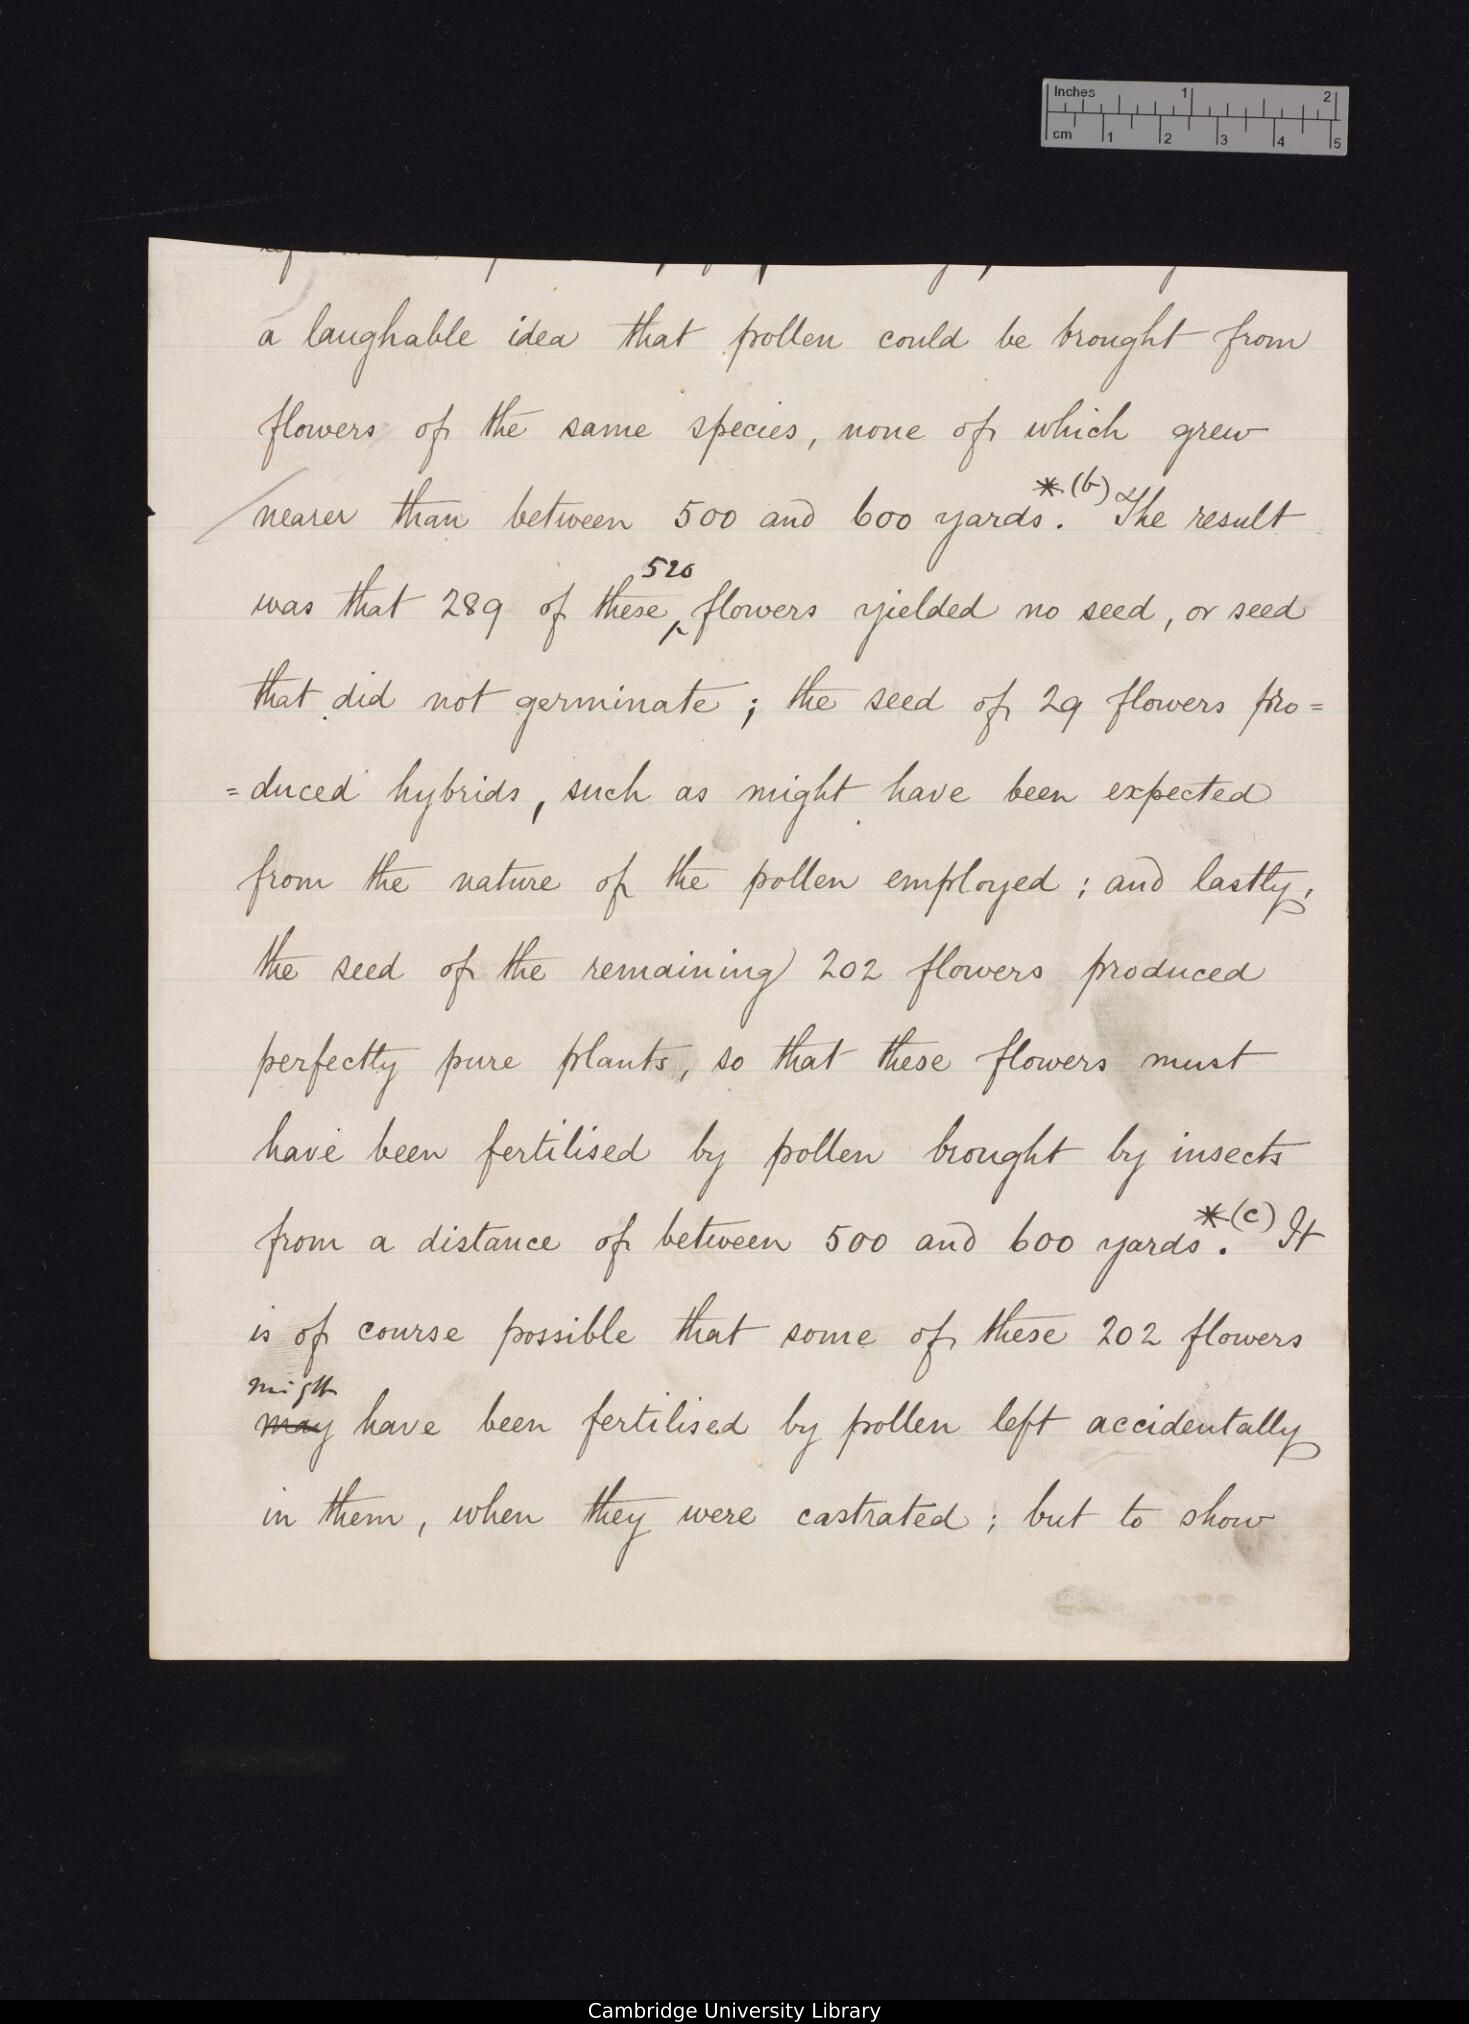 Inches 1 2
cm 1 2 3 4 5
a laughable idea that pollen could be brought from
flowers of the same species, none of which grew
nearer than between 500 and 600 yards.*(b) The result
520
was that 289 of these ‸ flowers yielded no seed, or seed
that did not germinate; the seed of 29 flowers pro=
=duced hybrids, such as might have been expected
from the nature of the pollen employed; and lastly,
the seed of the remaining 202 flowers produced
perfectly pure plants, so that these flowers must
have been fertilised by pollen brought by insects
from a distance of between 500 and 600 yards.*(c) It
is of course possible that some of these 202 flowers
might
may have been fertilised by pollen left accidentally
in them, when they were castrated; but to show
Cambridge University Library